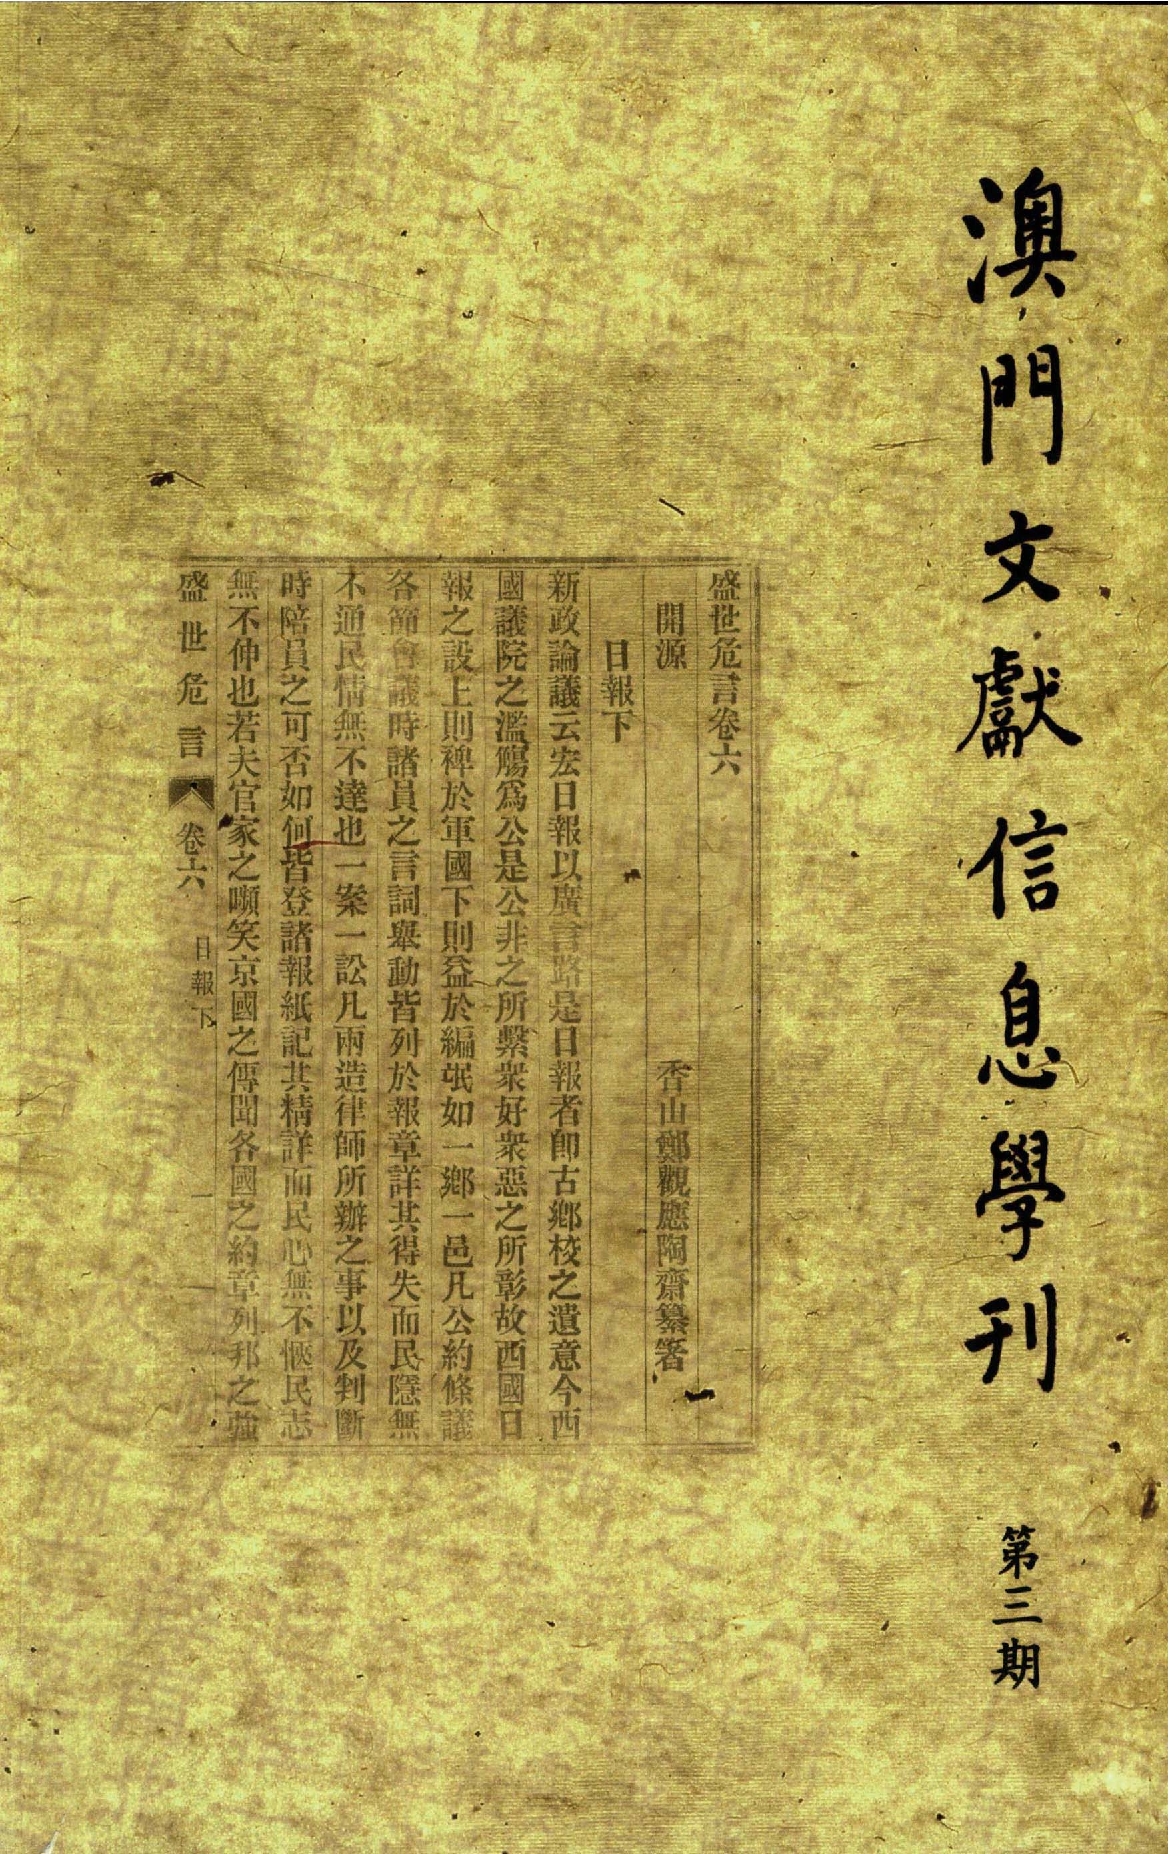 澳門文獻信息學刊
第三期
盛世危言卷六
開源
香山鄭觀應陶齋纂箸
日報下
新政論議云宏日報以廣言路是日報者卽古鄕校之遺意今西
國議院之濫觴爲公是公非之所繫衆好衆惡之所彰故西國日
報之設上則裨於軍國下則益於編氓如一鄕一邑凡公約條議
各節會議時諸員之言詞舉動皆列於報章詳其得失而民隱無
不通民情無不達也一案一訟凡兩造律師所辦之事以及判斷
時陪員之可否如何皆登諸報紙記其精詳而民心無不愜民志
無不伸也若夫官家之嚬笑京國之傳聞各國之約章列邦之強
盛世危言
卷六
日報下
一